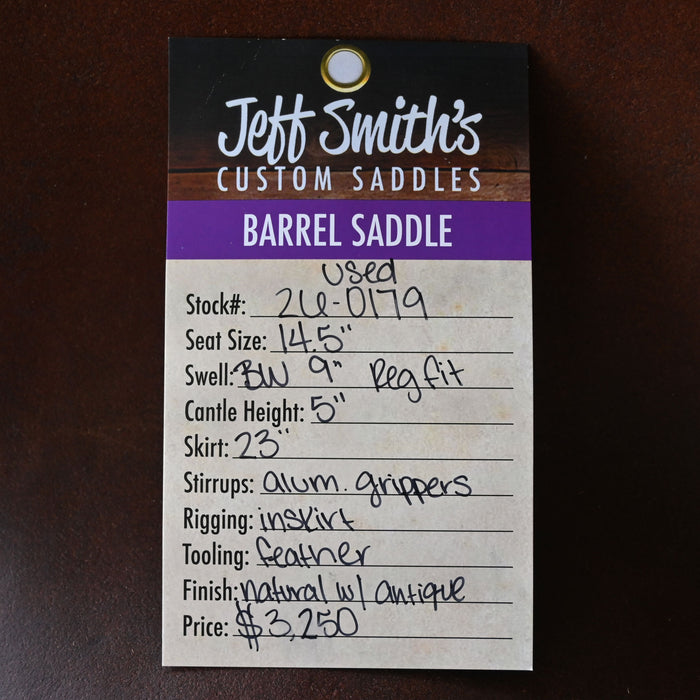 Jeff Smith's
CUSTOM SADDLES
BARREL SADDLE
used
Stock#: 2U-0179
Seat Size: 14.5"
Swell: BW 9" Reg fit
Cantle Height: 5"
Skirt: 23"
Stirrups: alum. grippers
Rigging: inskirt
Tooling: feather
Finish: natural w/ antique
Price: $3,250